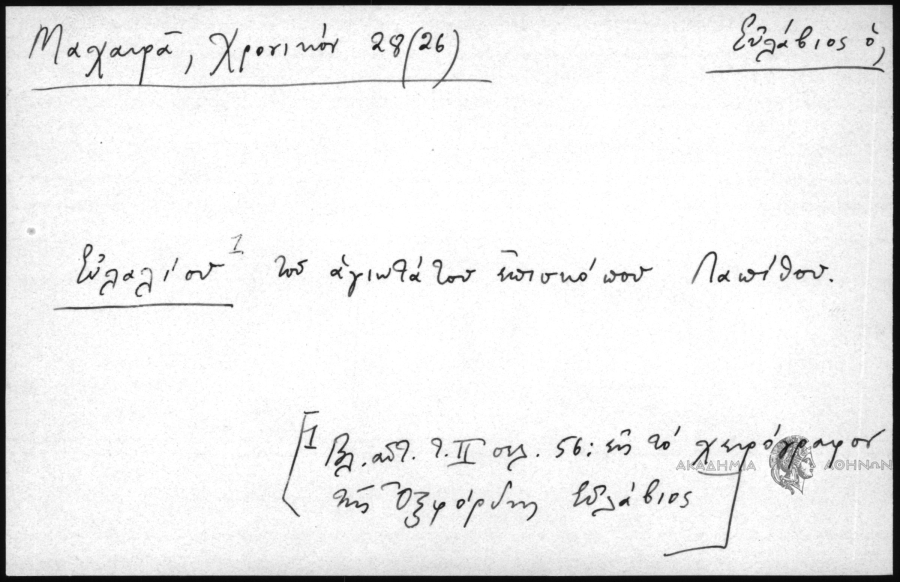 Μαχαιρᾶ, Χρονικόν 28(26)
Εὐλάβιος ὁ,
Εὐλαλίου 1 τοῦ ἁγιωτάτου ἐπισκόπου Λαπίθου.
[1 Βλ. αὐτ. τ. II σελ. 56: εἰς τό χειρόγραφον
ΑΚΑΔΗΜΙΑ ΑΘΗΝΩΝ
τῆς Ὀξφόρδης Εὐλάβιος]